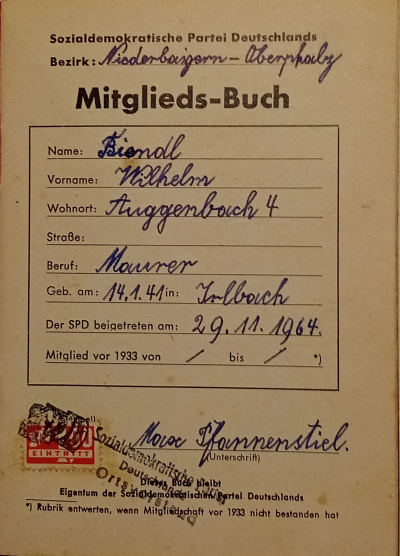 Sozialdemokratische Partei Deutschlands
Bezirk: Niederbayern-Oberpfalz
Mitglieds-Buch
Name: Biendl
Vorname: Wilhelm
Wohnort: Auggenbach 4
Straße:
Beruf: Maurer
Geb. am: 14.1.41 in: Irlbach
Der SPD beigetreten am: 29.11.1964.
Mitglied vor 1933 von / bis / *)
Max Pfannenstiel.
(Unterschrift)
EINTRITT
Sozialdemokratische Partei
Deutschlands
Ortsverein
Dieses Buch bleibt
Eigentum der Sozialdemokratischen Partei Deutschlands
*) Rubrik entwerten, wenn Mitgliedschaft vor 1933 nicht bestanden hat